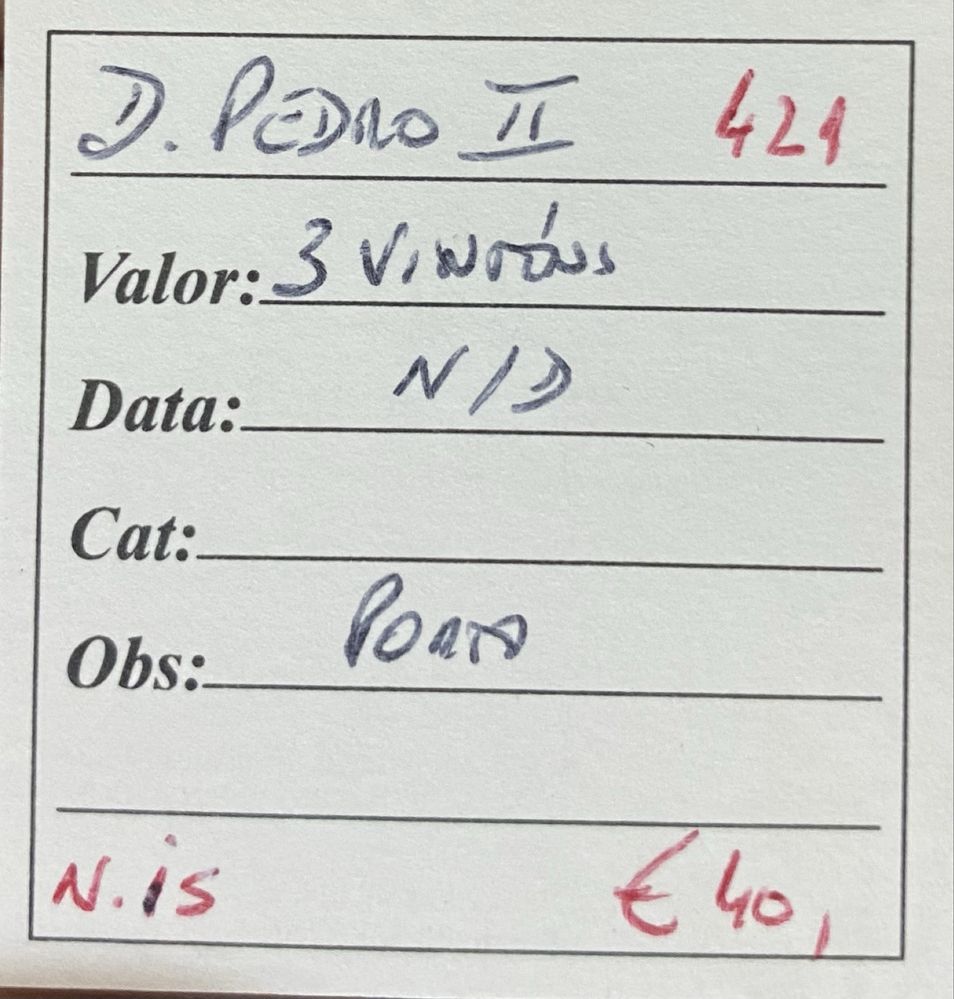 D. PEDRO II 421
Valor: 3 VINTÉNS
Data: N/D
Cat:
Obs: PORTO
N.is € 40,